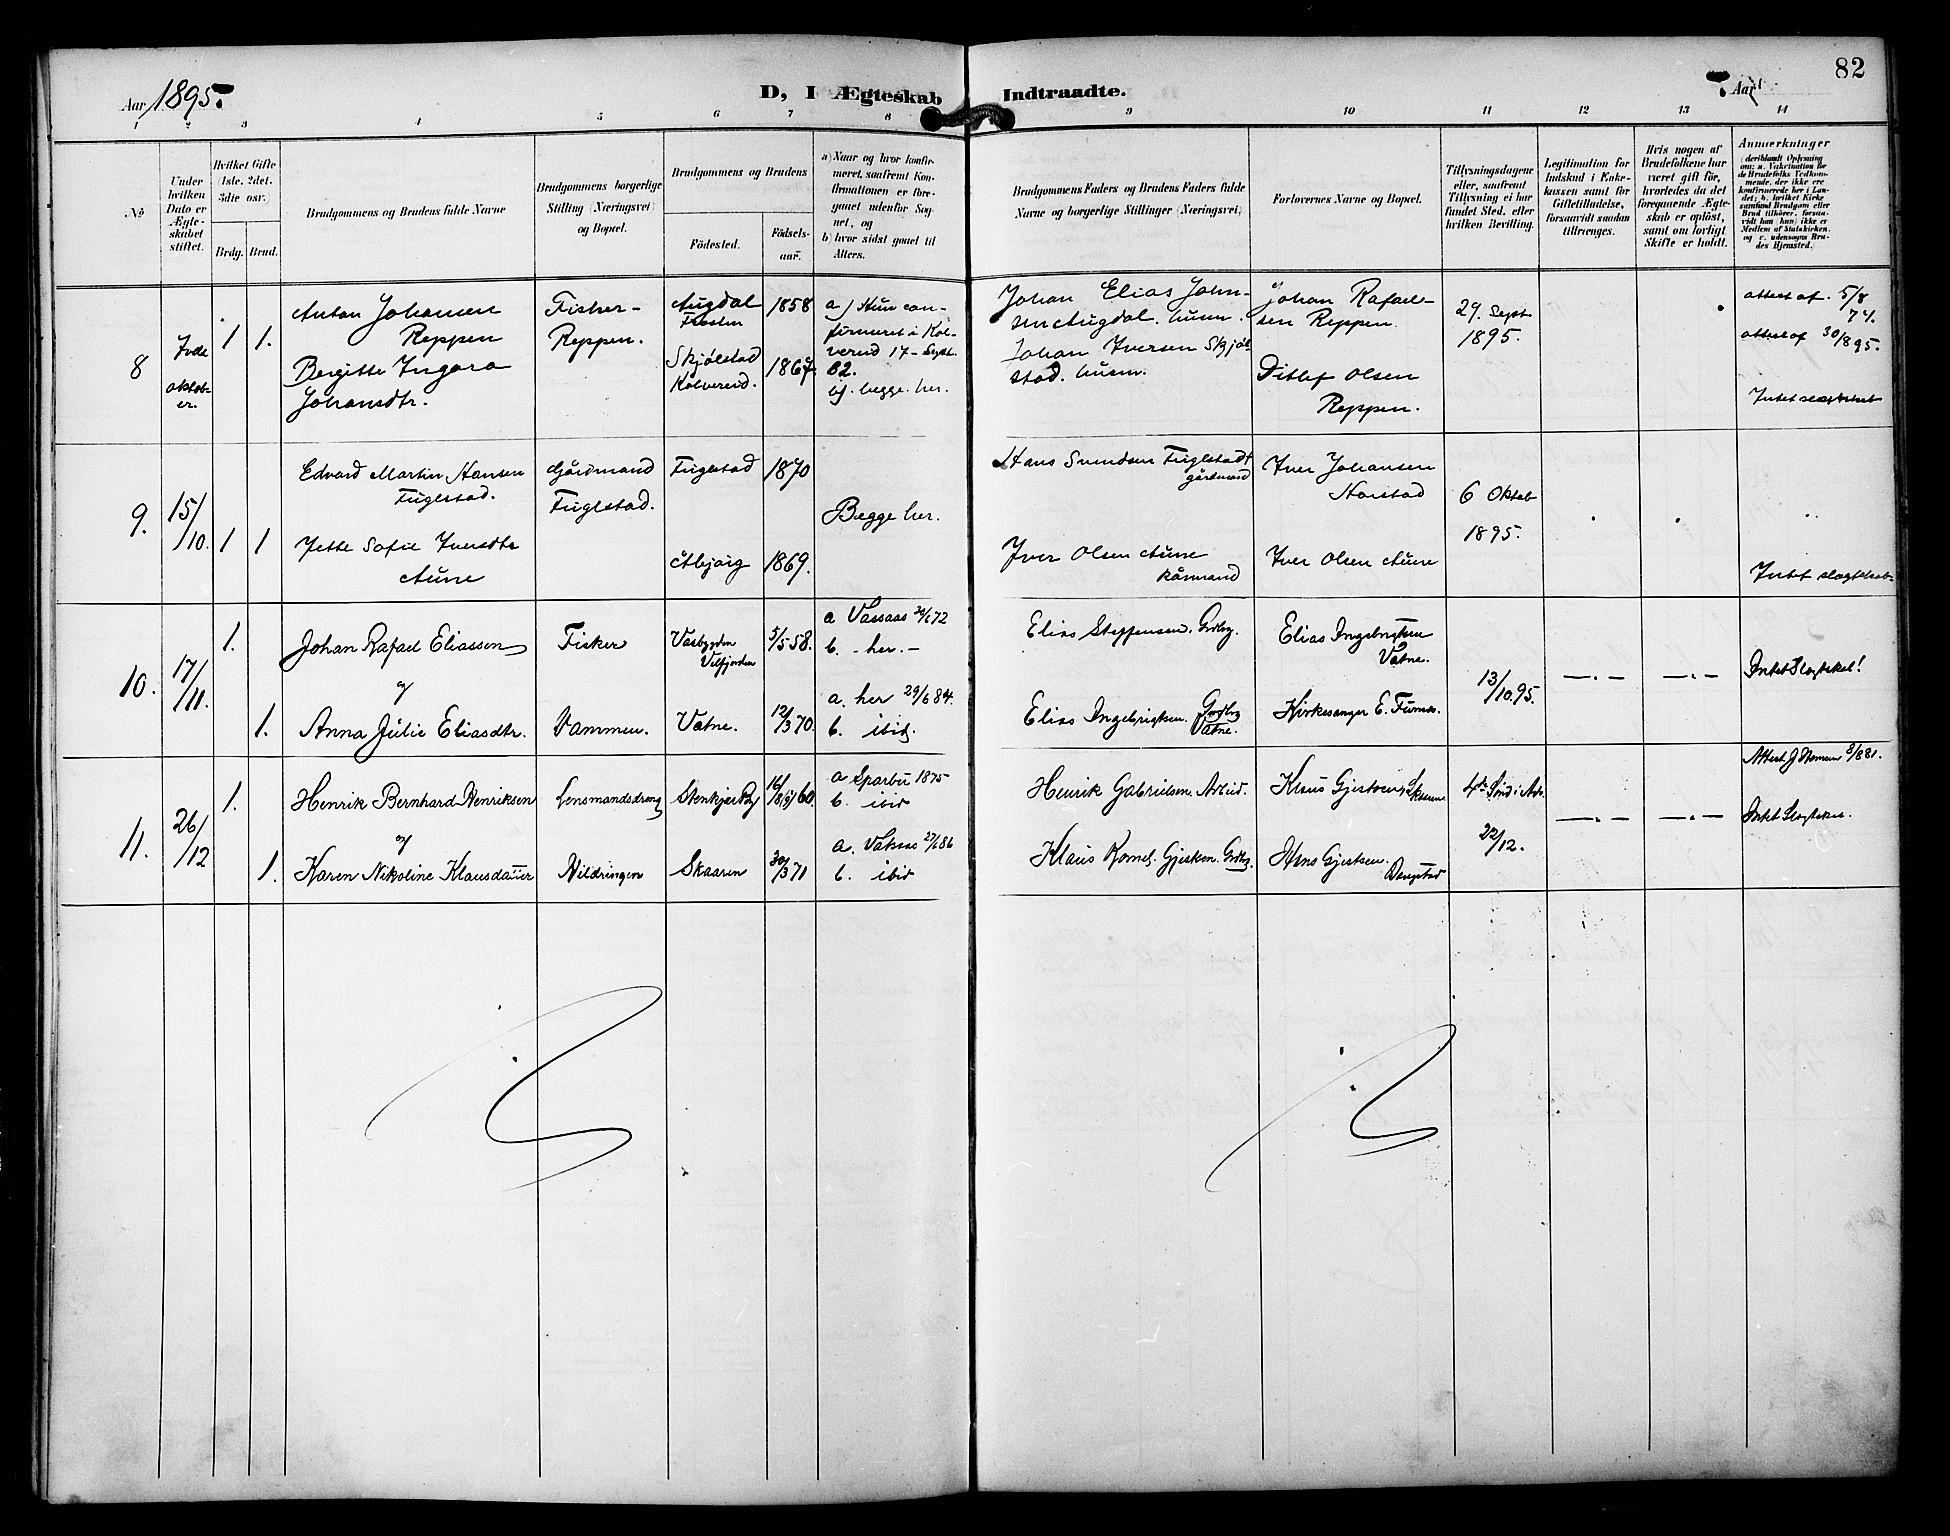 82
Aar 1895.
D, I Ægteskab Indtraadte.
Aar
1 2 3 4 5 6 7 8 9 10 11 12 13 14
No
Under hvilken Dato er Ægteskabet stiftet.
Hvilket Gifte (1ste. 2det. 3die osv.)
Brdg. Brud.
Brudgommens og Brudens fulde Navne
Brudgommens borgerlige Stilling (Næringsvei) og Bopæl.
Brudgommens og Brudens
Födested.
Födselsaar.
a) Naar og hvor konfirmeret, saafremt Konfirmationen er foregaaet udenfor Sognet, og
b) hvor sidst gaaet til Alters.
Brudgommens Faders og Brudens Faders fulde Navne og borgerlige Stillinger (Næringsvei)
Forlovernes Navne og Bopæl.
Tillysningsdagene eller, saafremt Tillysning ei har fundet Sted. efter hvilken Bevilling.
Legitimation for Indskud i Enkekassen samt for Giftetilladelse, forsaavidt saadan tiltrænges.
Hvis nogen af Brudefolkene har været gift för, hvorledes da det foregaaende Ægteskab er oplöst, samt om lovligt Skifte er holdt.
Anmærkninger
(deriblandt Oplysning om: a. Vakcination for de Brudefolks Vedkommende, der ikke ere konfirmerede her i Landet; b. hvilket Kirkesamfund Brudgom eller Brud tilhörer, forsaavidt han (hun) ikke er Medlem af Statskirken. og c. udensogns Brudes Hjemsted.
8
oktober.
1 1.
Anton Johansen
Reppen
Bergitte Ingara
Johansdtr.
Fisker-
Reppen.
Augdal
Frosten
Skjølstad
Kolvereid.
1858
1867.
a) Hun confirmeret i Kolvereid 17-Sept. 82.
b). begge her.
Johan Elias Johnsen Augdal. husm.
Johan Iversen Skjølstad. husm.
Johan Rafaelsen Reppen.
Ditlef Olsen
Reppen.
29. Sept
1895.
attest af 5/8
74.
attest af 30/8 95.
Intet slægtskab
9.
15/10.
1 1
Edvard Martin Hansen
Fuglestad.
Jette Sofie Iversdtr
Aune
Gårdmand
Fuglestad.
Fuglestad
Åbjørg
1870
1869.
Begge her.
Hans Svendsen Fuglestad
gårdmand
Iver Olsen Aune
kårmand
Iver Johansen
Norstad
Iver Olsen Aune
6 Oktob
1895.
Intet slægtskab
10.
17/11.
1.
1.
Johan Rafael Eliassen
og
Anna Julie Eliasdtr.
Fisker
Vammen.
Vasbygden
Velfjorden
Vatne.
5/5 58.
12/3 70.
a Vassaas 72
b. - her. -
a. her 29/6 84.
b. ibid.
Elias Steffensen. Grdbrg.
Elias Ingebrigtsen. Grdbrg
Vatne.
Elias Ingebrigtsen
Vatne.
Kirkesanger E.
13/10. 95.
— . —
— . —
Intet Slægtskab!
11.
26/12
1.
1.
Henrik Bernhard Henriksen
og
Karen Nikoline Klausdatter
Lensmandsdreng
Vildringen
Stenkjer
Skaaren
60.
30/3 71
a Sparbu 1875
b. ibid
a. 27/6 86
b. ibid
Henrik Gabrielsen. Arbeid.
Klaus Kornel. Gjertsen. Grdbrg.
Klaus Gjertsen
Hans Gjertsen.
4de Sönd i Adv.
22/12.
— . —
— . —
Attest 8/8 81.
Intet Slægtskab.